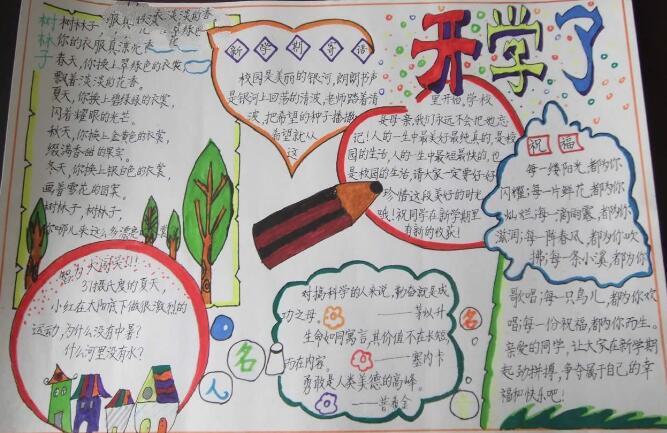 开学了
树林子
树林子,
你的衣服真漂亮
春天,你换上翠绿色的衣裳
飘着淡淡的花香。
夏天,你换上碧绿绿的衣裳,
闪着耀眼的光芒。
秋天,你换上金黄色的衣裳,
缀满香甜的果实。
冬天,你换上银白色的衣裳,
画着雪花的图案。
树林子,树林子,
你哪儿来这么多漂亮衣裳
新学期寄语
校园是美丽的银河,朗朗书声
是银河上回荡的清波,老师踏着清
波,把希望的种子播撒,
希望就从
这
里开始,学校
是母亲,我们永远不会把她忘
记!人的一生中最美好最纯真的,是校
园的生活,人的一生中最短最快的,也
是校园的生活,请大家一定要好好
珍惜这段美好的时光
哦!祝同学在新学期里
有新的收获!
祝福
每一缕阳光,都为你
闪耀;每一片鲜花,都为你
灿烂;每一滴雨露,都为你
滋润;每一阵春风,都为你吹
拂;每一条小溪,都为你
歌唱;每一只鸟儿,都为你欢
唱;每一份祝福,都为你而生。
亲爱的同学,让大家在新学期
起劲拼搏,争夺属于自己的幸
福和快乐吧!
智力大闯关!!!
31摄氏度的夏天,
小红在太阳底下做很激烈的
运动,为什么没有中暑?
什么河里没有水?
名人名言
对搞科学的人来说,勤奋就是成
功之母。——茅以升
生命如同寓言,其价值不在长短,
而在内容。——塞内卡
勇敢是人类美德的高峰。
——普希金